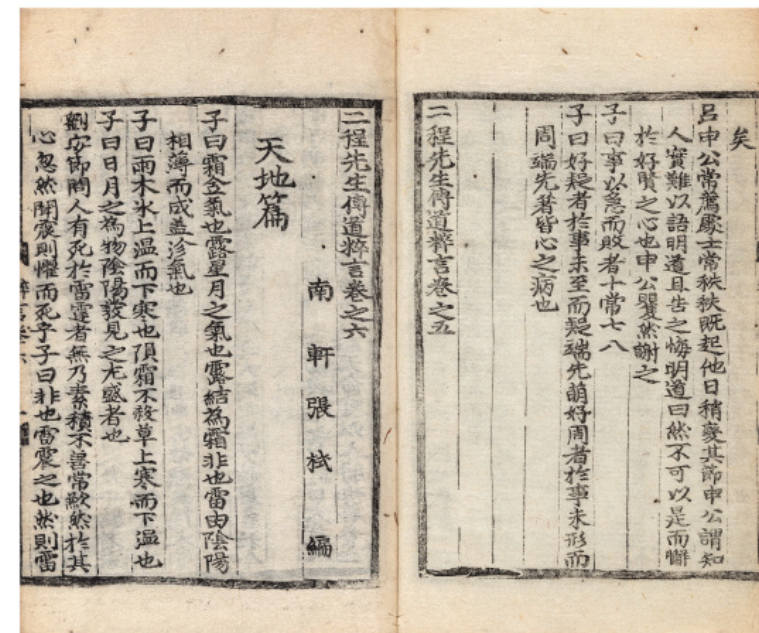 矣
呂申公常薦處士常秩秩既起他日稍變其節申公謂知
人實難以語明道且告之悔明道曰然不可以是而懈
於好賢之心也申公瞿然謝之
子曰事以急而敗者十常七八
子曰好疑者於事未至而疑端先萌好周者於事未形而
周端先著皆心之病也
二程先生傳道粹言卷之五
二程先生傳道粹言卷之六
南軒張栻編
天地篇
子曰霜金氣也露星月之氣也露結為霜非也雷由陰陽
相薄而成盖沴氣也
子曰雨木氷上温而下寒也隕霜不殺草上寒而下温也
子曰日月之為物陰陽發見之尤盛者也
劉安節問人有死於雷霆者無乃素積不善常歉然於其
心忽然聞震則懼而死乎子曰非也雷震之也然則雷
粹言卷六